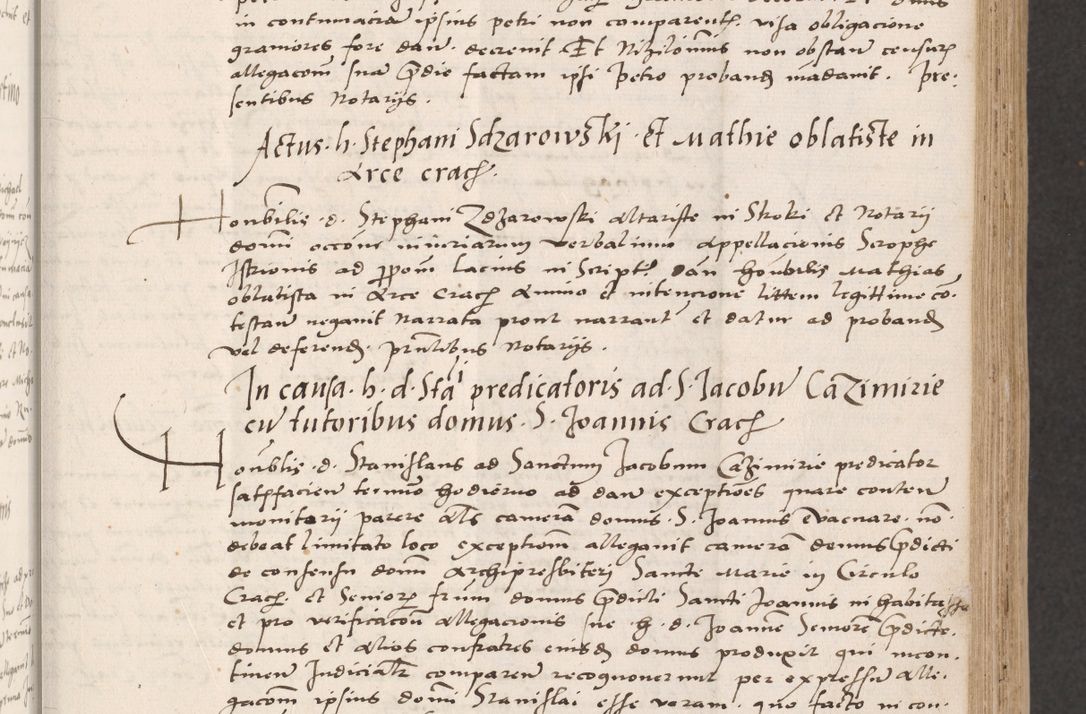 in contumaciam ipsius petri non comparentis. visa obligacione
graviores fore dan. decrevit. Et Nihilominus non obstan censuris
allegacom sua pdie factam ipsi Petro proband mandavit. Pre-
sentibus Notarys.
Actus. h. Stephani Sdzarowski. et Mathie oblatiste in
Arce Crac.
Honbilis. d. Stephani Zdzarowski altariste in Skoki et Notarii
domi occone iniuriarum verbalium Appellacionis
ad ppom lacius in Script. dan honbilis Mathias
oblatista in Arce Crac Animo et intencione littem legittime con-
testan negavit narrata prout narrant et datur ad proband
vel deferend. prntibus Notarys.
In causa. h. d. Stani predicatoris ad. S. Jacobu Cazimirie
cu tutoribus domus. S. Joannis Crac
Honblis. d. Stanislaus ad Sanctum Jacobum Cazimirie predicator
satisfacien termino hodierno ad dan exceptiones quare conten
monitorii parere als camera domus. S. Joannis Evacuare. non
debeat limitato loco exceptiom allegavit camera domus pdicti
de consensu domi Archipresbiteri Sancte Marie in Circulo
Crac. et Senioris frum domus pdicti Sancti Joannis inhabitasse
et pro verificacon allegacionis sue. h. d. Joannem Seniorem pdicte.
domus et Alios confratres eiusd domus produxit qui incon-
tinen Judicialr comparen recognoverunt per expressu Alle-
gacom ipsius domi Stanislai esse veram. quo facto in con-